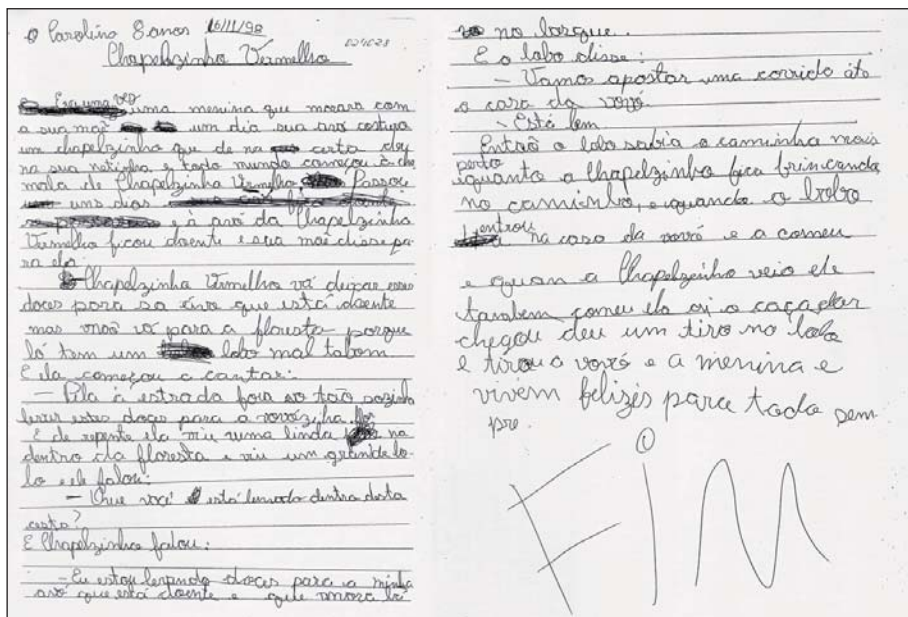 Carolina 8 anos 16/11/98
Chapelzinho Vermelho
Era uma vez uma menina que morava com
a sua mãe um dia sua avó costura
um chapelzinho que de na certa deu
na sua netinha e todo mundo começou à cha
mala de Chapelzinha Vermelha Passou
uns dias
e à avó da Chapelzinha
Vermelha ficou doente e sua mãe disse pa
ra ela:
Chapelzinha Vermelha vá deixar esses
doces para sa que está doente
mas não vá para a floresta porque
lá tem um lobo mal tabom.
E ela começou a cantar:
— Pila à estrada fora eo tão sozinha
levar estes doces para a vovózinha.
E de repente ela viu uma linda na
dentro da floresta e viu um grande lo-
bo e ele falou:
— Que você está levando dentro desta
cesta?
E Chapelzinho falou:
— Eu estou levando doces para a minha
avó que está doente e que mora lá
no bosque.
E o lobo disse:
— Vamos apostar uma corrida áte
a casa da vovó.
— Está bem
Então o lobo sabia o caminha mais
perto
equanto a Chapelzinho fica brincanda
no caminho, e quando o lobo
entrou na casa da vovó e a comeu
e quan a Chapelzinho veio ele
também comeu ela ai o caçador
chegou deu um tiro no lobo
e tirou a vovó e a menina e
vivem felizés para todo sem
pre.
FIM